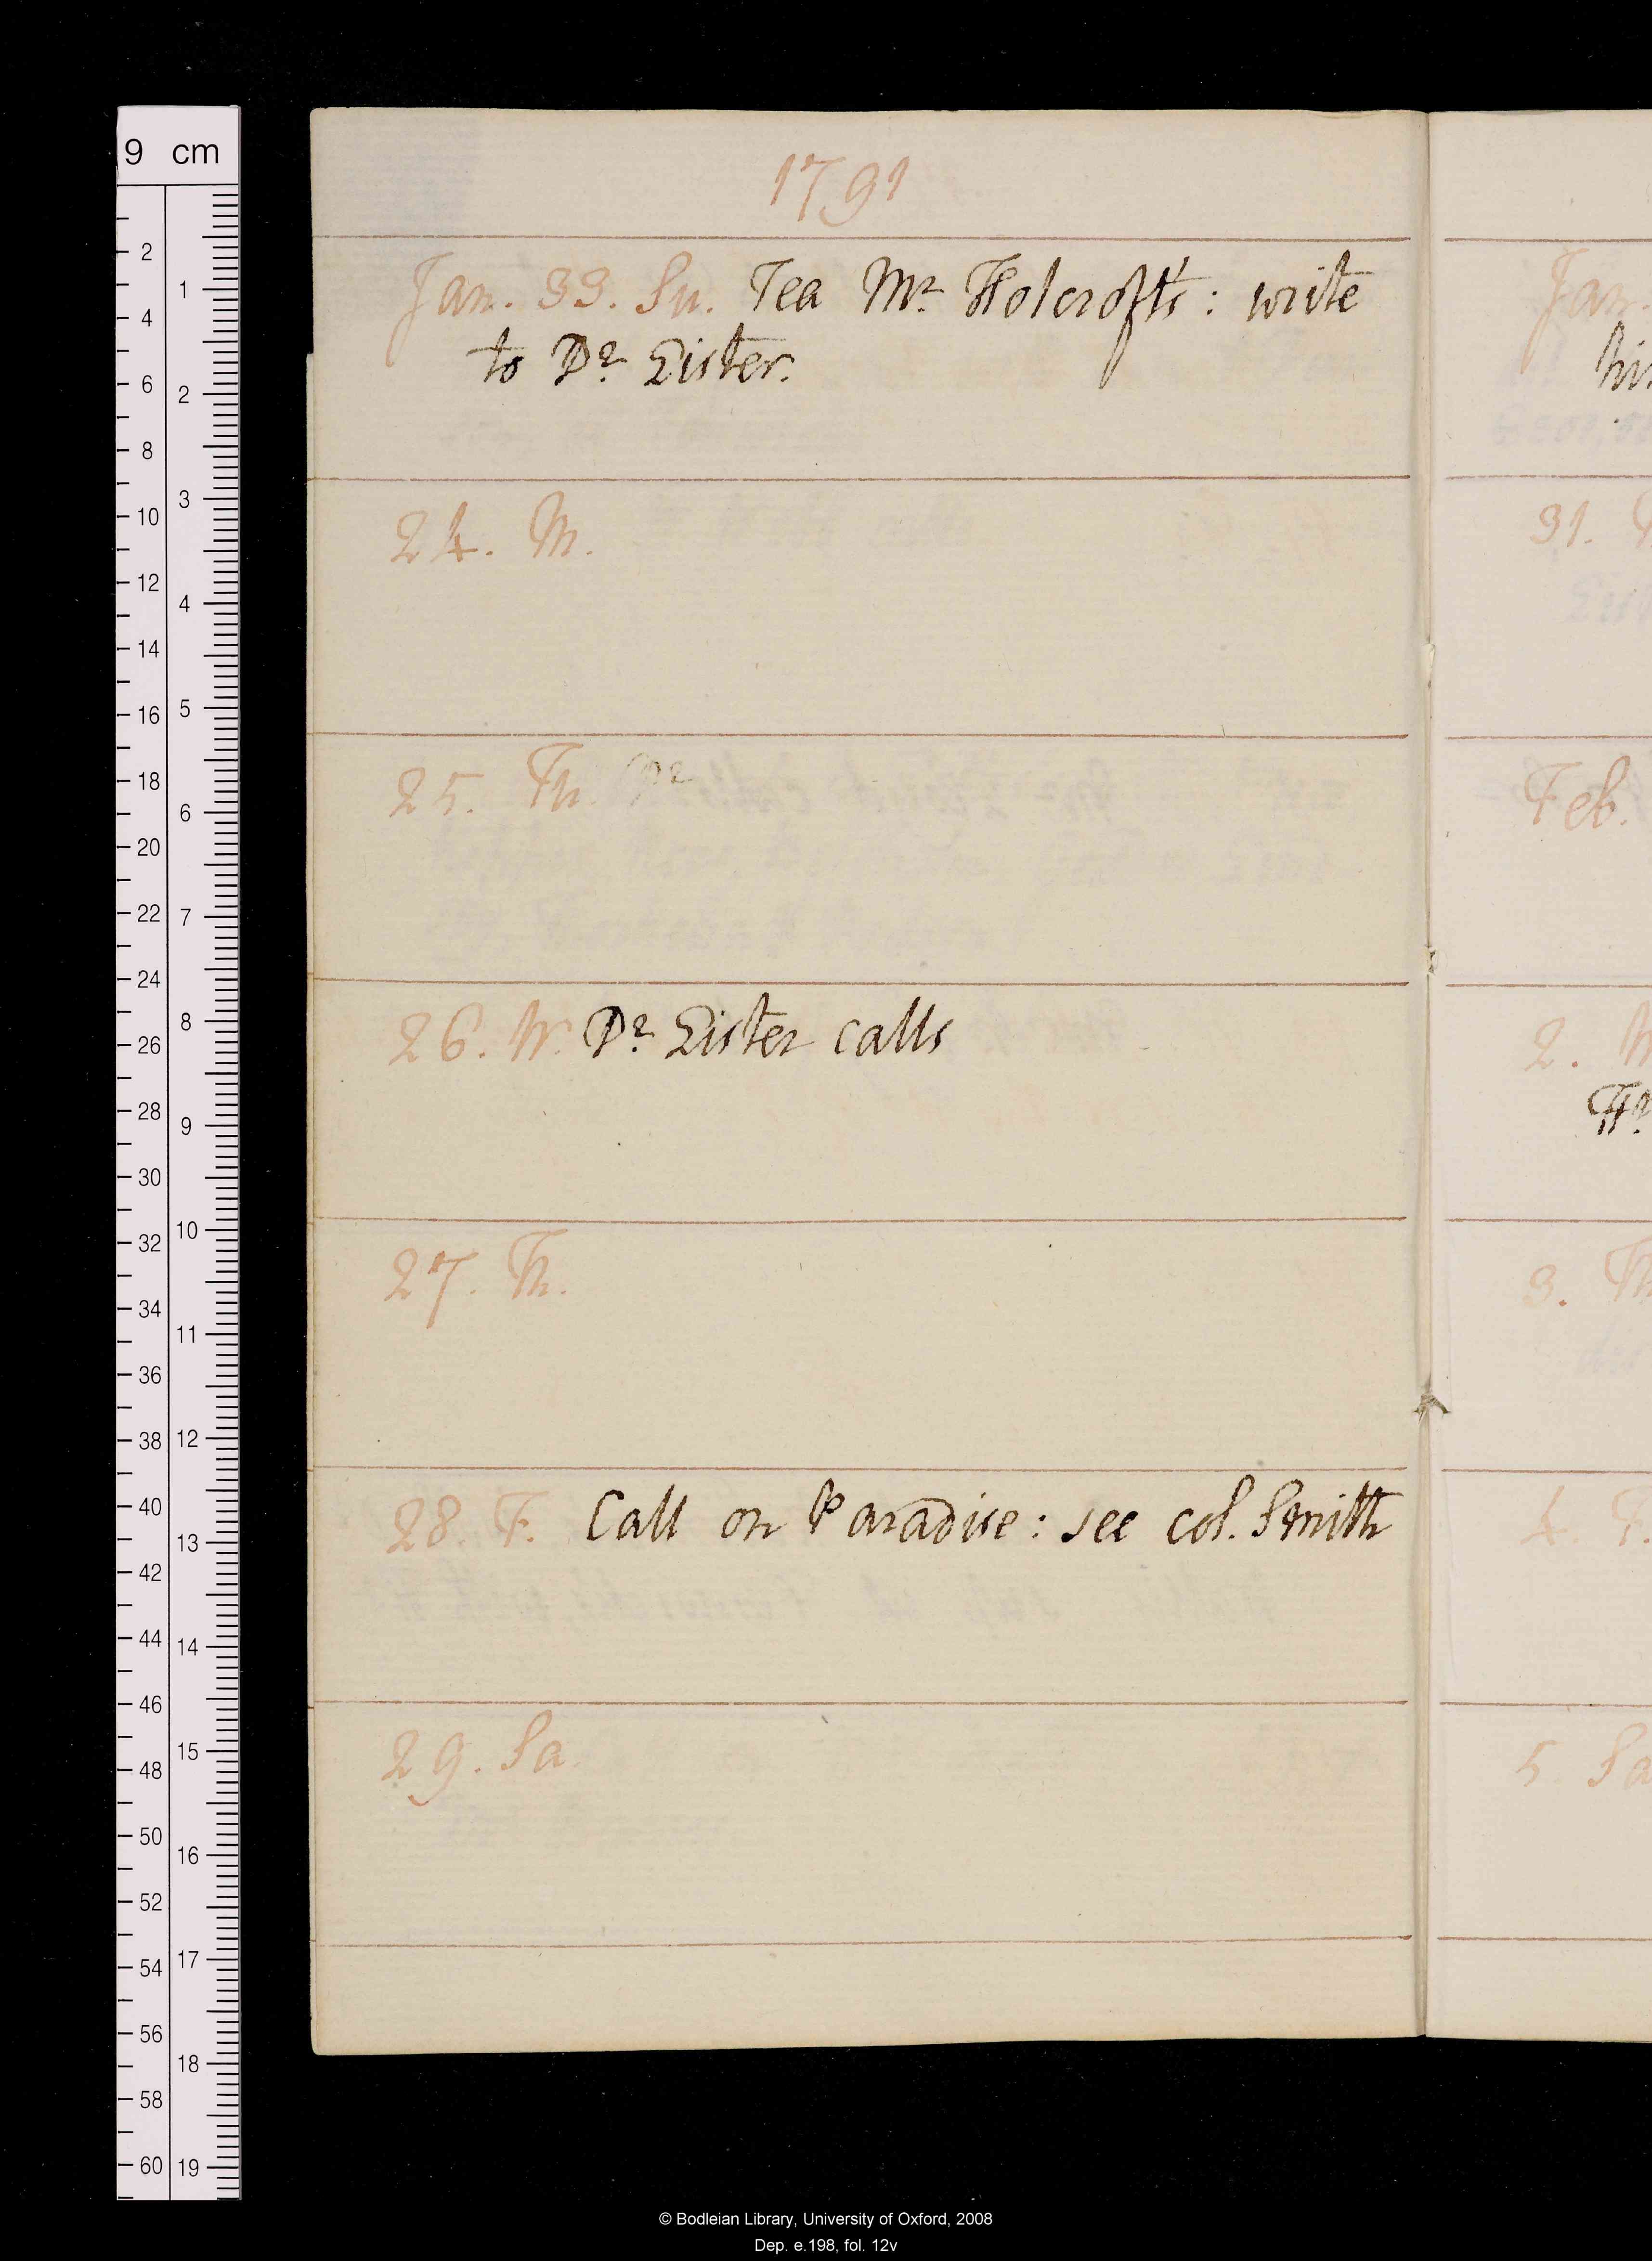 1791
Jan. 33. Su. Tea Mr Holcroft's: write
to Dr Lister.
24. M.
25. Tu.
26. W. Dr Lister calls
27. Th.
28. F. Call on Paradise: see col. Smith
29. Sa.
Jan.
31.
Feb.
2.
3. Th
4. F.
5. Sa
9 cm
2
4
6
8
10
12
14
16
18
20
22
24
26
28
30
32
34
36
38
40
42
44
46
48
50
52
54
56
58
60
1
2
3
4
5
6
7
8
9
10
11
12
13
14
15
16
17
18
19
© Bodleian Library, University of Oxford, 2008
Dep. e.198, fol. 12v